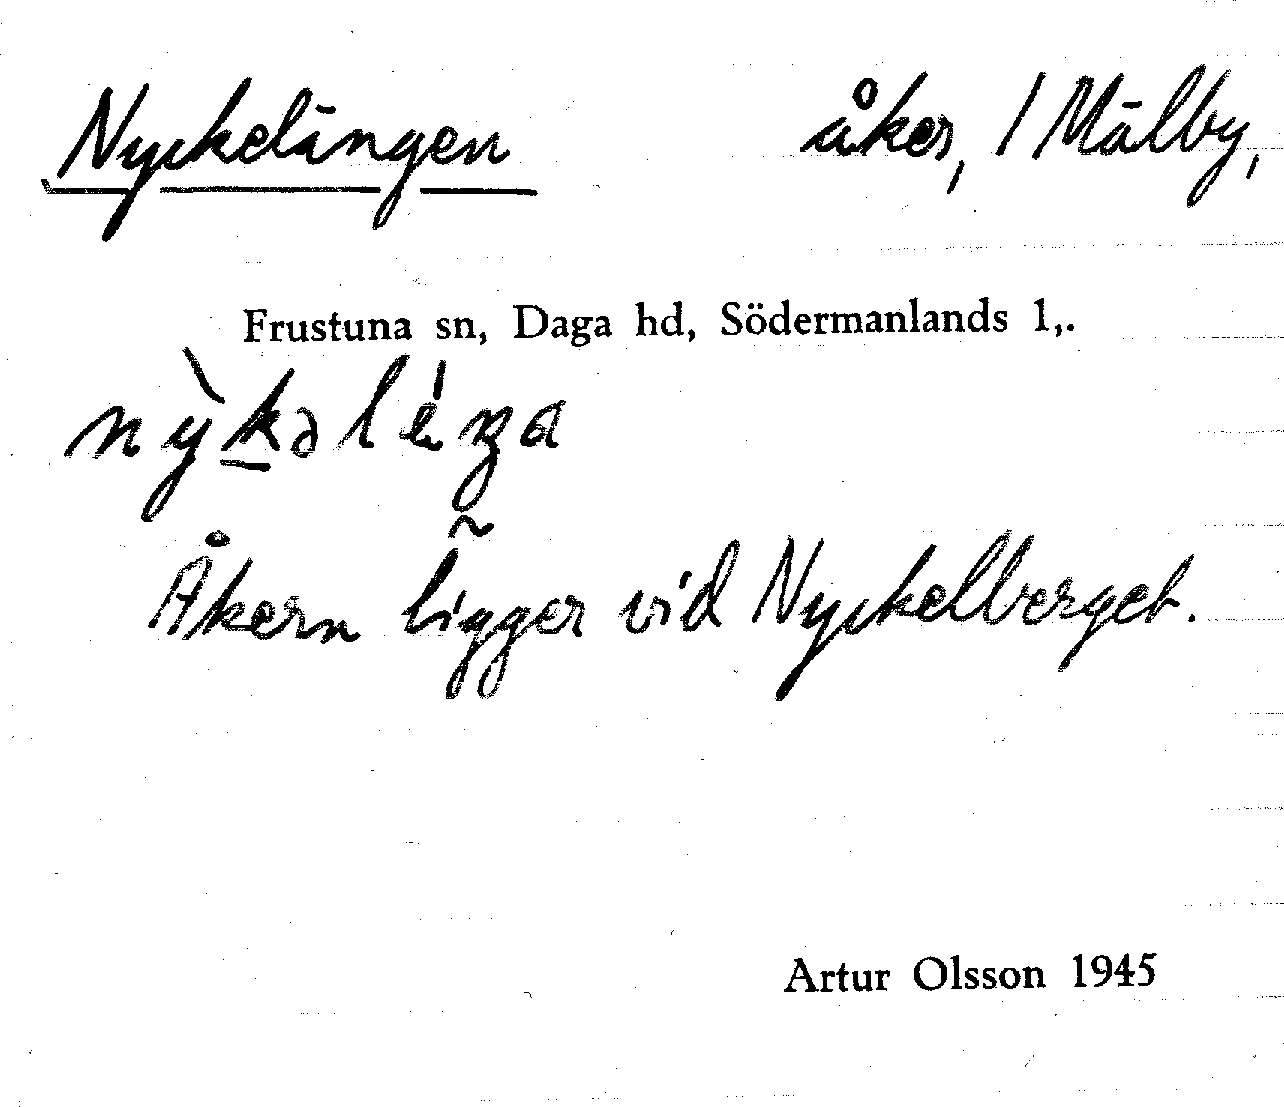 Nyckelängen åker, / Mälby,
Frustuna sn, Daga hd, Södermanlands l,.
Åkern ligger vid Nyckelberget.
Artur Olsson 1945